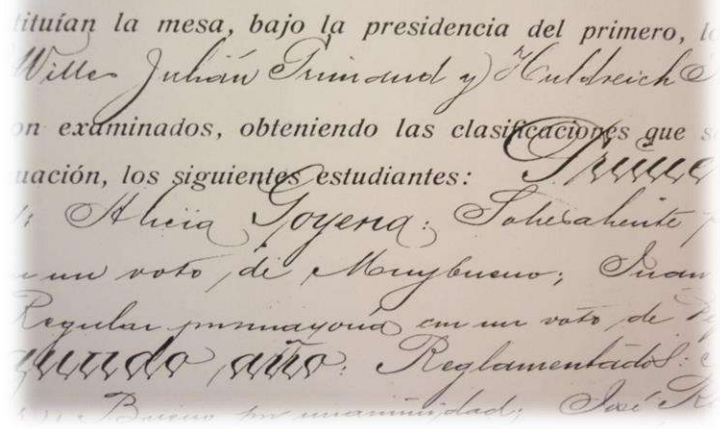 tituían la mesa, bajo la presidencia del primero, lo
Wille Julián y Huldreich
on examinados, obteniendo las clasificaciones que s
uación, los siguientes estudiantes:
Alicia Goyena: Sobresaliente
un voto de Muybueno; Juan
Regular por mayoría con un voto de
gundo año: Reglamentados:
Bueno por unanimidad; José R